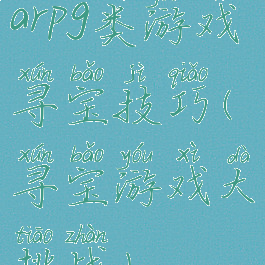 arpg类游戏
xún bǎo jì qiǎo
寻宝技巧(
xún bǎo yóu xì dà
寻宝游戏大
tiāo zhàn
挑战)